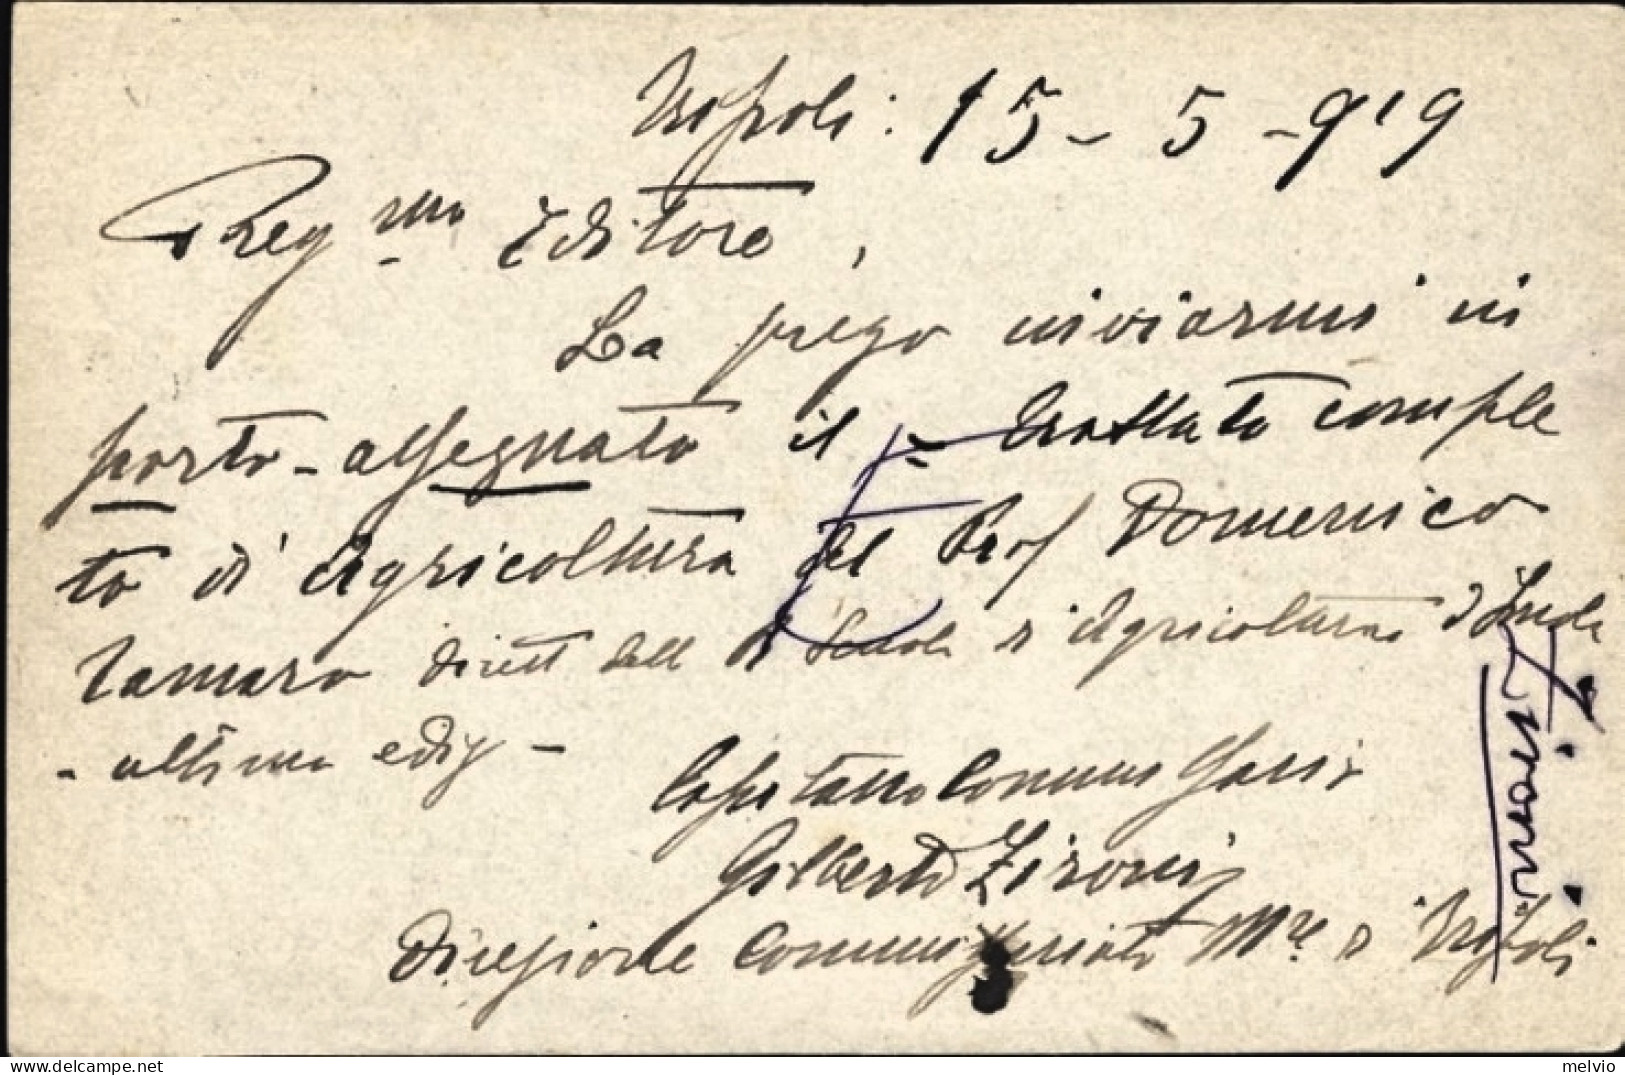 Napoli: 15-5-919
Preg.mo Editore,
La prego inviarmi in
porto-assegnato il trattato comple
to di Agricoltura del Prof Domenico
Tamaro dirett dell R Scuola d'Agricoltura d'Imola
- ultima ediz -
Capitano Commissario
Gilberto Zironi
Direzione Commissariato Mre di Napoli
Zironi
melvio